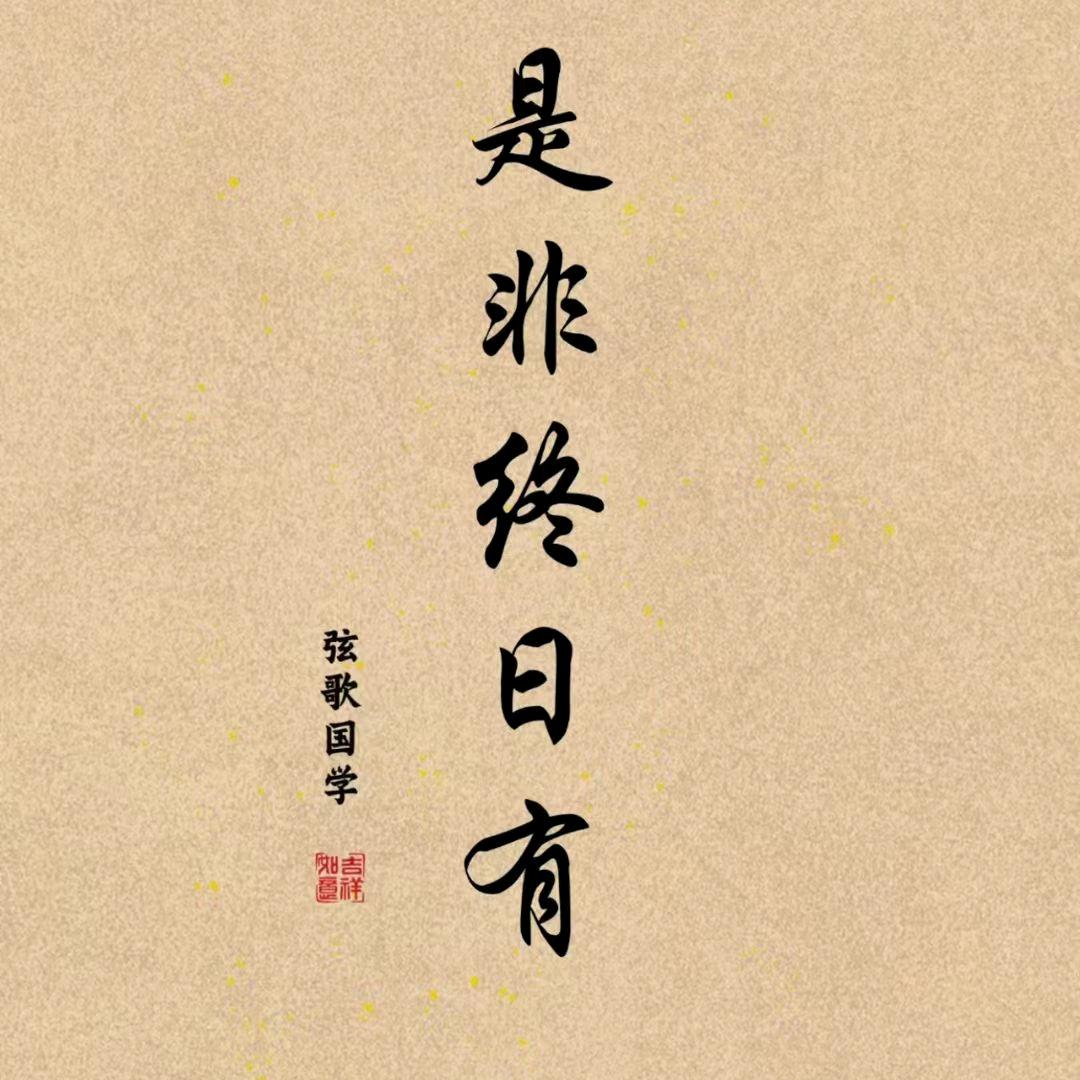 是非终日有
弦歌国学
吉祥如意